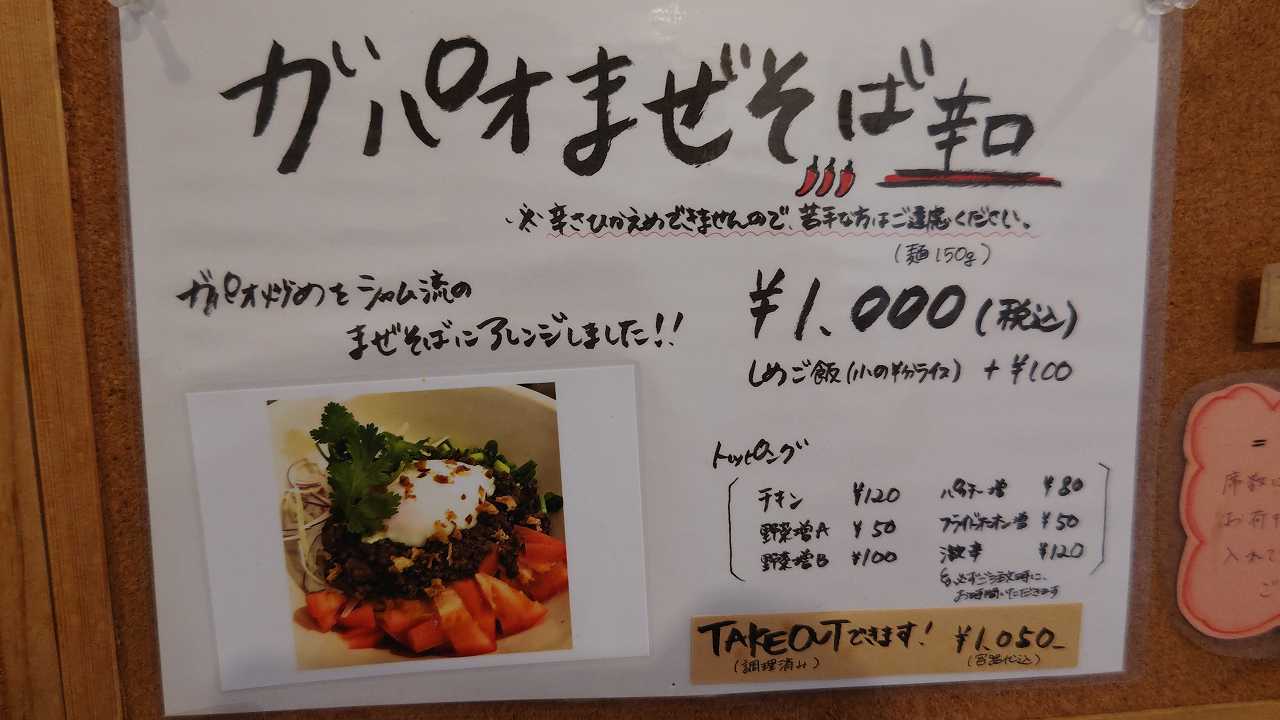 ガパオまぜそば 辛口
※辛さひかえめできませんので、苦手な方はご遠慮ください。
(麺150g)
ガパオ炒めをシャム流の
まぜそばにアレンジしました!!
¥1.000(税込)
しめご飯(小の半分ライス) +¥100
トッピング
チキン ¥120
野菜増A ¥50
野菜増B ¥100
パクチー増 ¥80
フライドオニオン増 ¥50
激辛 ¥120
必ずご注文時に、
お時間いただきます
TAKEOUTできます! ¥1.050-
(調理済み) (容器代込)
席数
お荷
入れて
ご